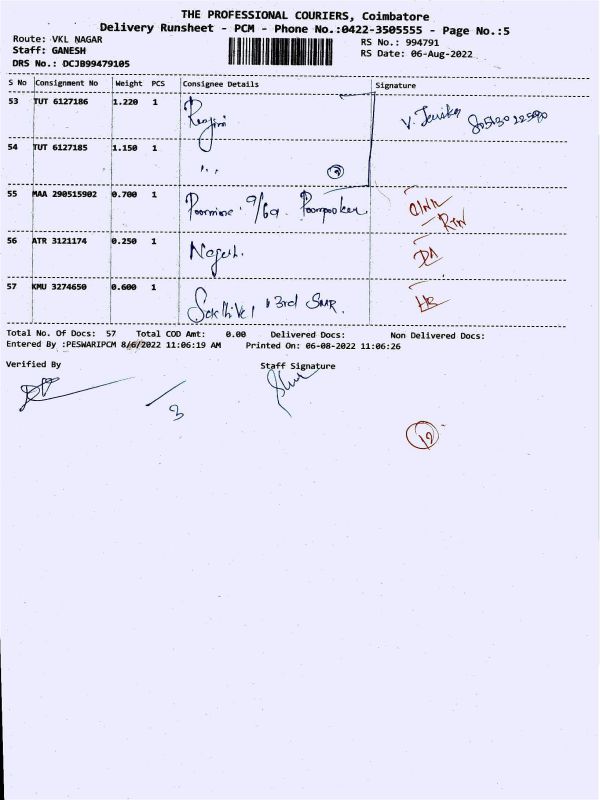 THE PROFESSIONAL COURIERS, Coimbatore
Delivery Runsheet - PCM - Phone No.:0422-3505555 - Page No.:5
Route: VKL NAGAR
Staff: GANESH
DRS No.: DCJB99479105
RS No.: 994791
RS Date: 06-Aug-2022
S No Consignment No Weight PCS Consignee Details Signature
53 TUT 6127186 1.220 1 Renjini
54 TUT 6127185 1.150 1 ,, 2
55 MAA 290515902 0.700 1 Poornima 9/69 RTN
56 ATR 3121174 0.250 1 Nagesh. DA
57 KMU 3274650 0.600 1 Sakthivel 3rd SMR.
Total No. Of Docs: 57 Total COD Amt: 0.00 Delivered Docs: Non Delivered Docs:
Entered By :PESWARIPCM 8/6/2022 11:06:19 AM Printed On: 06-08-2022 11:06:26
Verified By Staff Signature
3
19